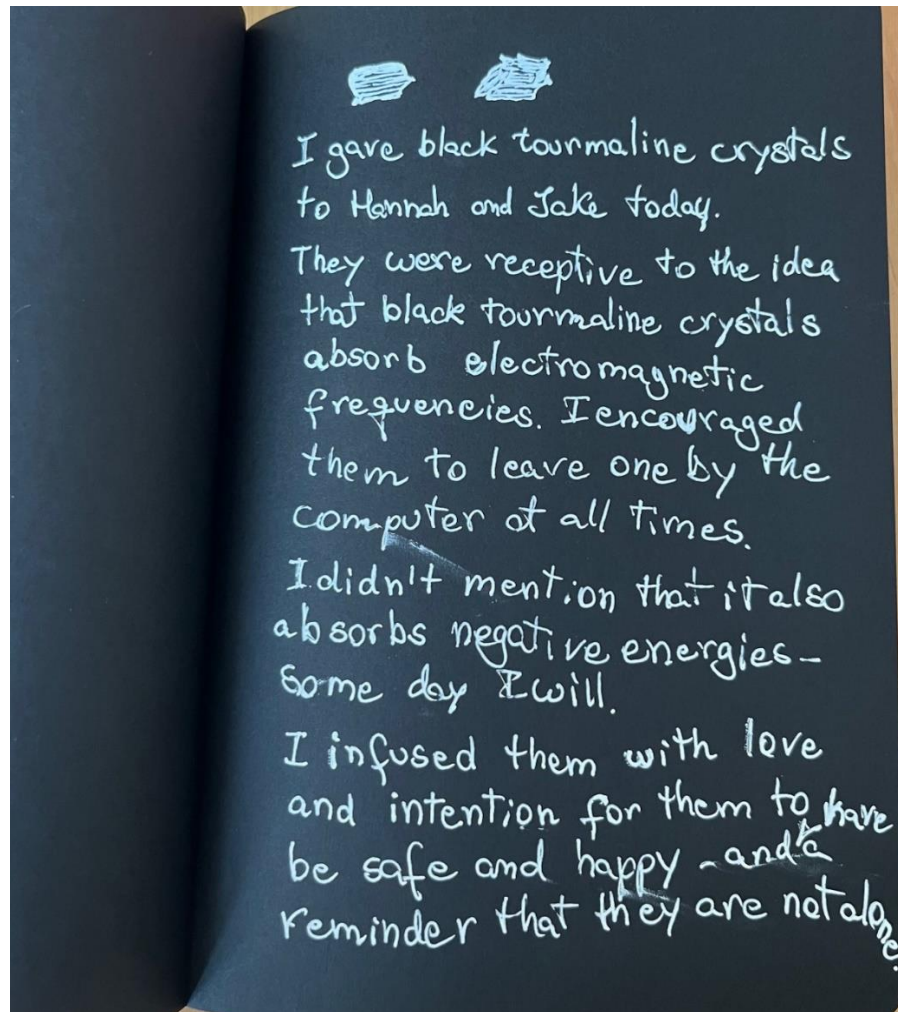 I gave black tourmaline crystals
to Hannah and Jake today.
They were receptive to the idea
that black tourmaline crystals
absorb electromagnetic
frequencies. I encouraged
them to leave one by the
computer at all times.
I didn't mention that it also
absorbs negative energies-
some day I will.
I infused them with love
and intention for them to have
be safe and happy - and a
reminder that they are not alone.